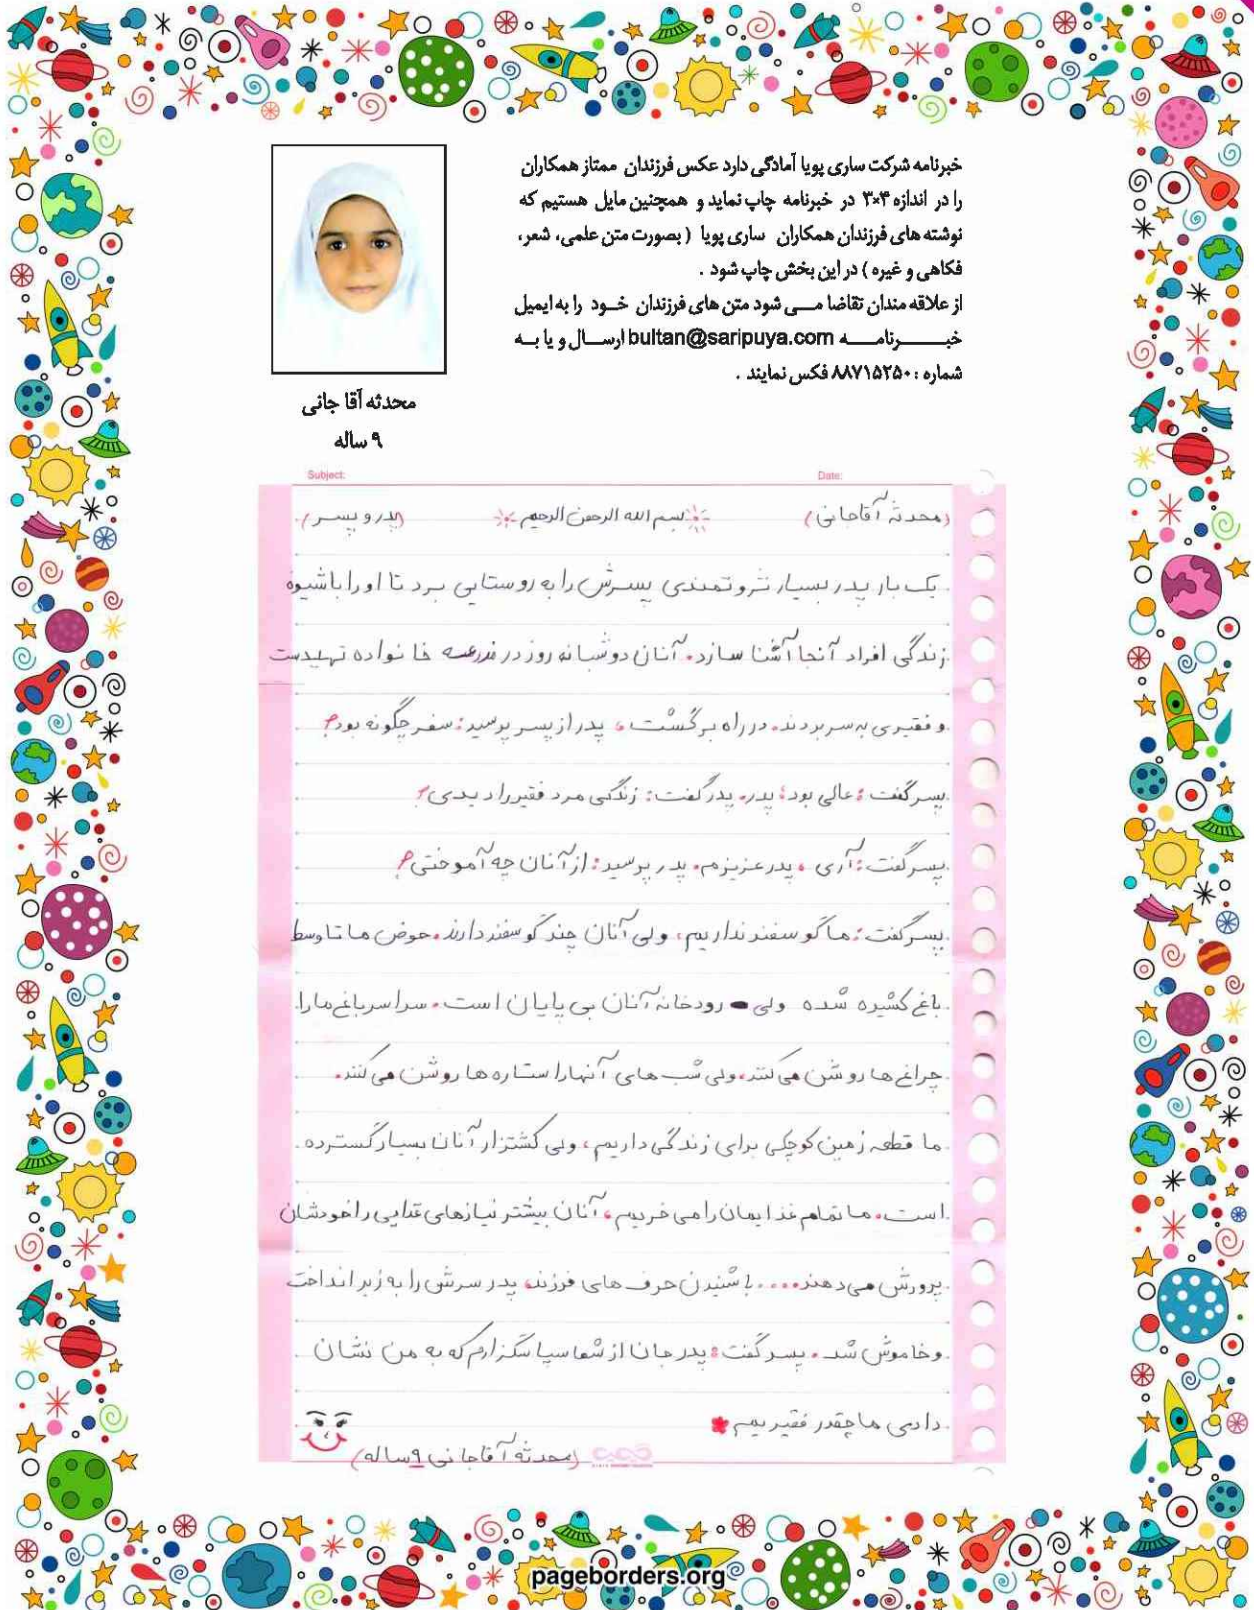 خبرنامه شرکت ساری پویا آمادگی دارد عکس فرزندان ممتاز همکاران
را در اندازه ۴×۳ در خبرنامه چاپ نماید و همچنین مایل هستیم که
نوشته های فرزندان همکاران ساری پویا ( بصورت متن علمی، شعر،
فکاهی و غیره ) در این بخش چاپ شود .
از علاقه مندان تقاضا مـــی شود متن های فرزندان خـــود را به ایمیل
خبـــــــرنامـــــه bultan@saripuya.com ارســـال و یا بـــه
شماره : ۸۸۷۱۵۲۵۰ فکس نمایند .
محدثه آقا جانی
۹ ساله
Subject: Date:
(محدثه آقاجانی) بسم الله الرحمن الرحیم (پدر و پسر).
یک بار پدر بسیار ثروتمندی پسرش را به روستایی برد تا او را با شیوه
زندگی افراد آنجا آشنا سازد. آنان دو شبانه روز در مزرعه خانواده تهیدست
و فقیری به سر بردند. در راه برگشت، پدر از پسر پرسید: سفر چگونه بود؟
پسر گفت: عالی بود؛ پدر. پدر گفت: زندگی مرد فقیر را دیدی؟
پسر گفت: آری، پدر عزیزم. پدر پرسید: از آنان چه آموختی؟
پسر گفت: ما گوسفند نداریم، ولی آنان چند گوسفند دارند. حوض ما تا وسط
باغ کشیده شده ولی رودخانه آنان بی پایان است. سراسر باغ ما را
چراغ ها روشن می کنند، ولی شب های آنها را ستاره ها روشن می کنند.
ما قطعه زمین کوچکی برای زندگی داریم، ولی کشتزار آنان بسیار گسترده
است. ما تمام غذایمان را می خریم، آنان بیشتر نیازهای غذایی را خودشان
پرورش می دهند.... با شنیدن حرف های فرزند، پدر سرش را به زیر انداخت
و خاموش شد. پسر گفت: پدر جان از شما سپاسگزارم که به من نشان
دادی ما چقدر فقیریم
(محدثه آقاجانی ۹ساله)
pageborders.org